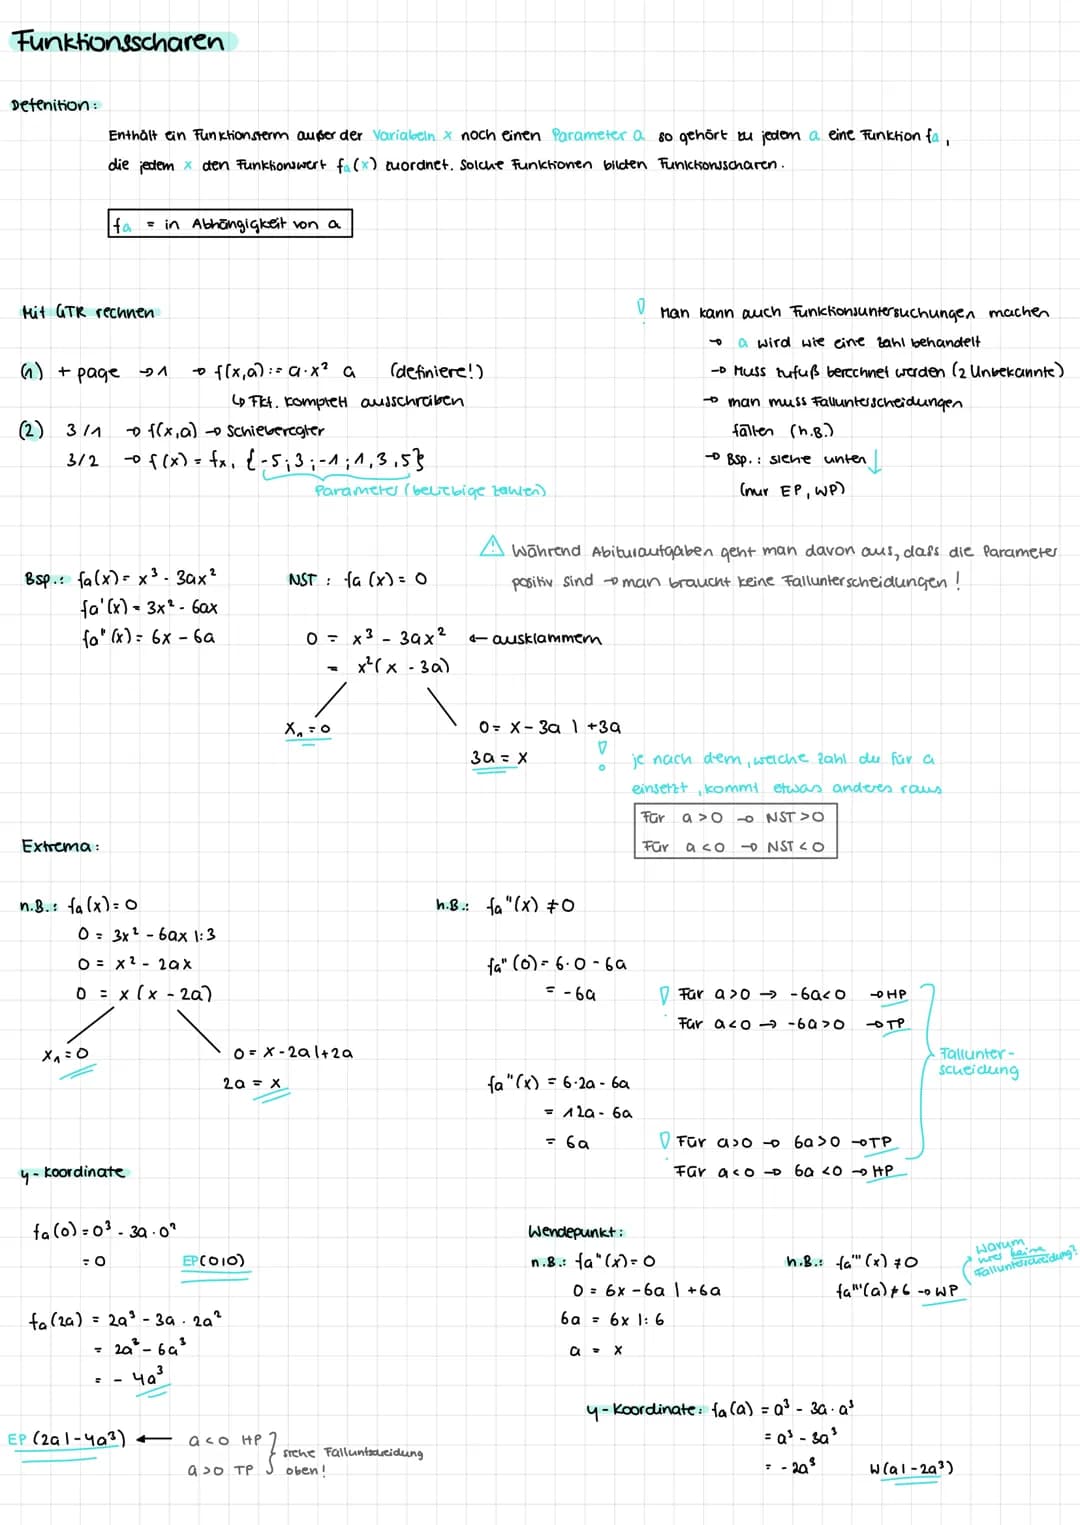 Funktionsscharen
Defenition:
Enthält ein Funktionsterm außer der Variabeln x noch einen Parameter a so gehört zu jedem a eine Funktion fa,
die jedem x den Funktionswert fa(x) zuordnet. Solche Funktionen bilden Funktionsscharen.
fa = in Abhängigkeit von a
Mit GTR rechnen
(1) + page → 1 → f(x,a) := a·x² a (definiere!)
↳ Fkt. komplett ausschreiben
(2) 3/1 → f(x,a) → Schieberegler
3/2 → f(x) = fx, {-5;3;-1;1,3,5}
Parameter (beliebige Zahlen)
! Man kann auch Funktionsuntersuchungen machen
→ a wird wie eine Zahl behandelt
→ Muss zufuß berechnet werden (2 Unbekannte)
→ man muss Fallunterscheidungen
fällen (h.B.)
→ Bsp.: siehe unten ↓
(nur EP, WP)
⚠ Während Abituraufgaben geht man davon aus, dass die Parameter
positiv sind → man braucht keine Fallunterscheidungen!
Bsp.: fa(x) = x³ - 3ax²
fa'(x) = 3x² - 6ax
fa"(x) = 6x - 6a
NST: fa(x) = 0
0 = x³ - 3ax² ← ausklammern
= x²(x - 3a)
x₁ = 0
0 = x - 3a | +3a
3a = x
! je nach dem, welche Zahl du für a
einsetzt, kommt etwas anderes raus
Für a > 0 → NST > 0
Für a < 0 → NST < 0
Extrema:
n.B.: fa(x) = 0
0 = 3x² - 6ax |:3
0 = x² - 2ax
0 = x(x - 2a)
x₁ = 0
0 = x - 2a |+2a
2a = x
h.B.: fa"(x) ≠ 0
fa"(0) = 6·0 - 6a
= -6a
! Für a>0 → -6a<0 → HP
Für a<0 → -6a>0 → TP
fa"(x) = 6·2a - 6a
= 12a - 6a
= 6a
! Für a>0 → 6a>0 → TP
Für a<0 → 6a<0 → HP
Fallunter-
scheidung
y-Koordinate
fa(0) = 0³ - 3a·0²
= 0
EP(0|0)
fa(2a) = 2a³ - 3a·2a²
= 2a³ - 6a³
= -4a³
EP(2a|-4a³) ← a<0 HP
a>0 TP
siehe Fallunterscheidung
oben!
Wendepunkt:
n.B.: fa"(x) = 0
0 = 6x - 6a | +6a
6a = 6x |:6
a = x
h.B.: fa"'(x) ≠ 0
fa"'(a) ≠ 6 → WP
Warum
hier keine
Fallunterscheidung?
y-Koordinate: fa(a) = a³ - 3a·a³
= a³ - 3a³
= -2a³
W(a|-2a³)